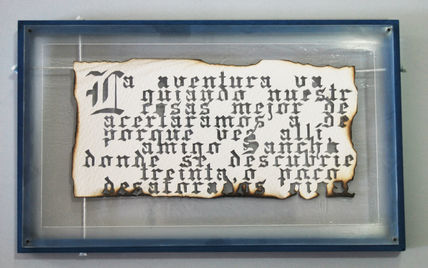 La aventura va
guiando nuestr
cosas mejor de
acertáramos a de
porque ves allí,
amigo Sanch
donde se descubrie
treinta o poco
desaforados